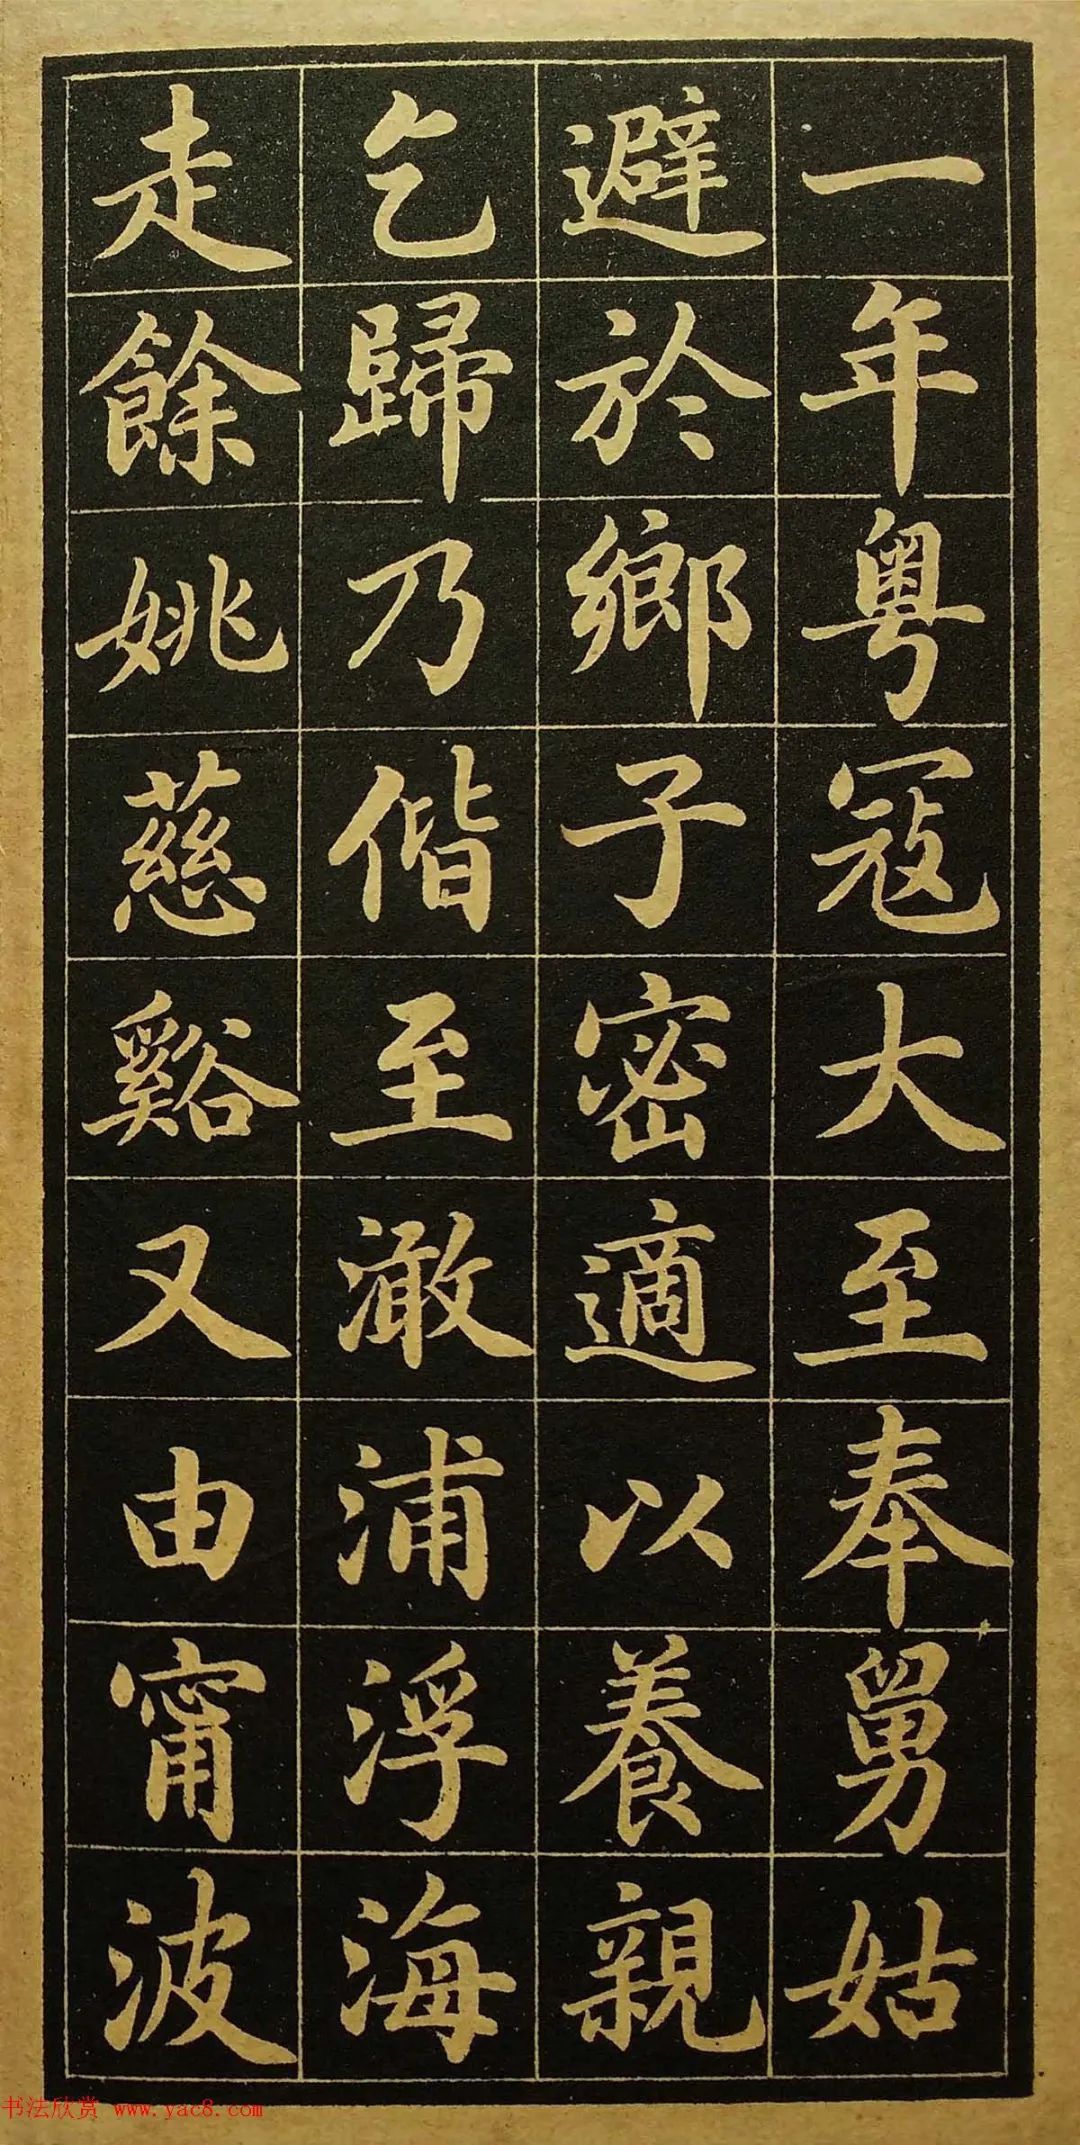 一年粵寇大至奉舅姑
避於鄉子密適以養親
乞歸乃偕至澉浦浮海
走餘姚慈谿又由甯波
书法欣赏 www.yac8.com